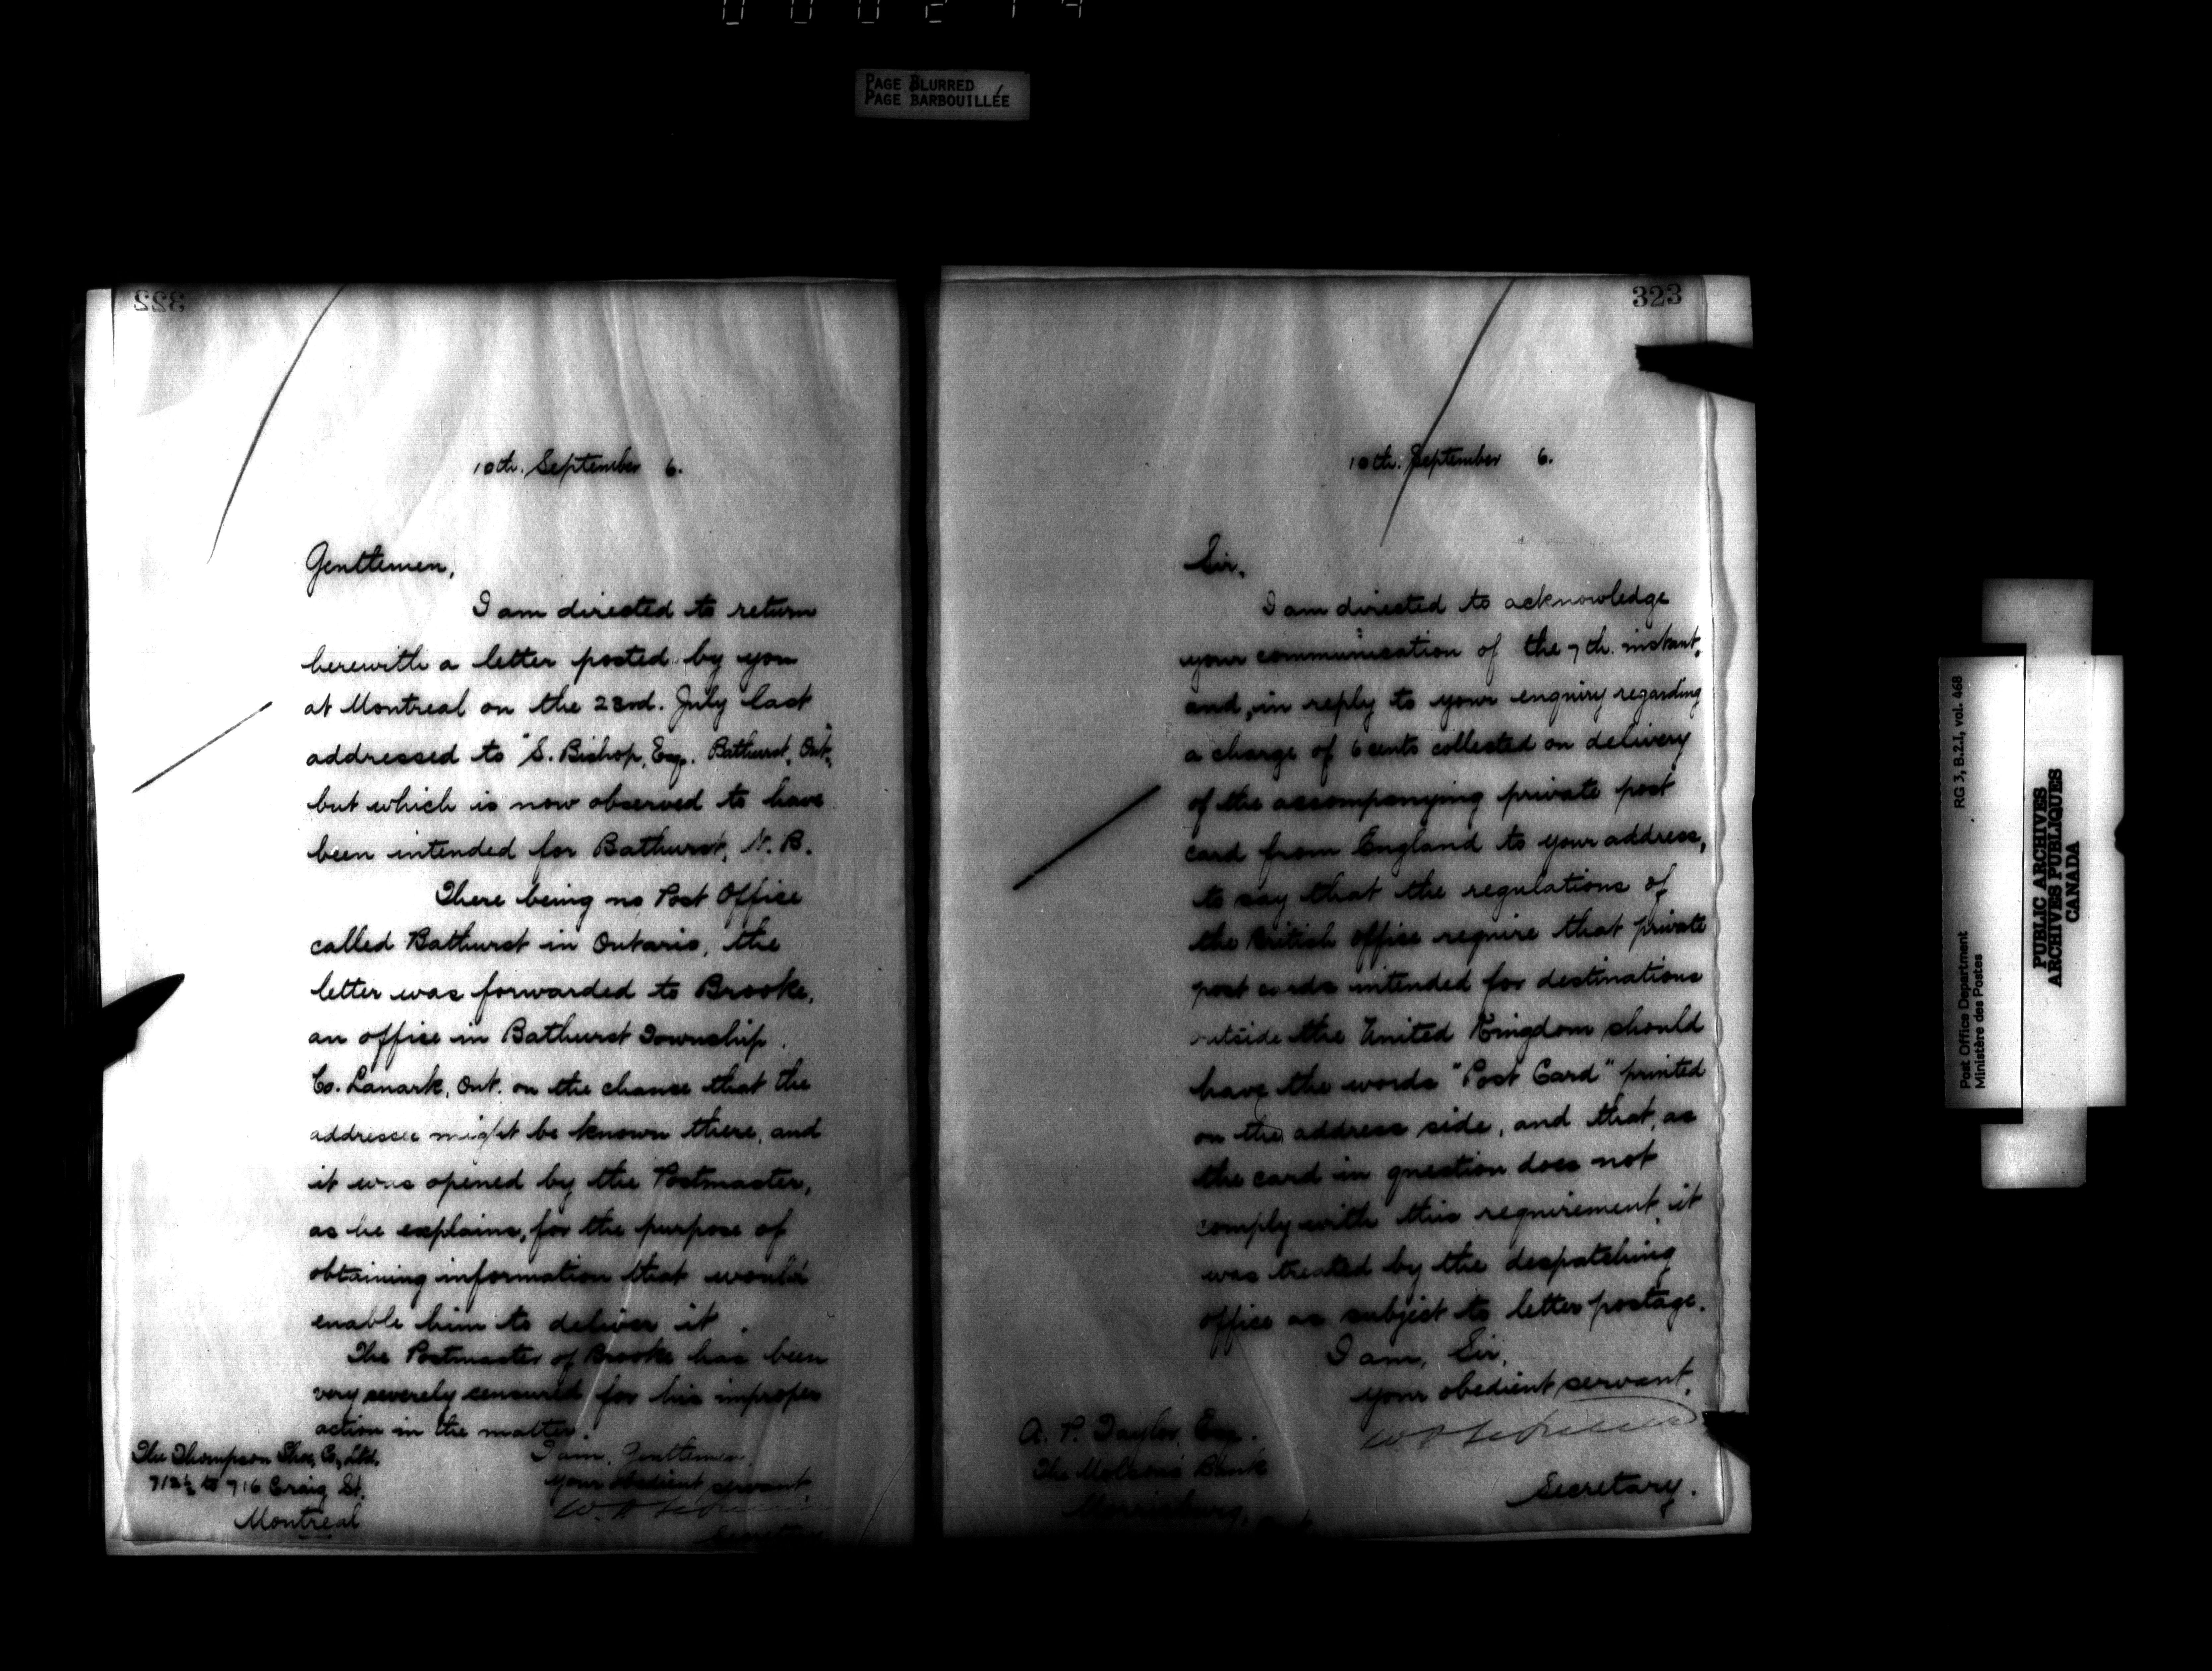 PAGE BLURRED
PAGE BARBOUILLÉE
322
10th. September 6.
Gentlemen,
I am directed to return
herewith a letter posted by you
at Montreal on the 23rd. July last
addressed to "S. Bishop, Esq. Bathurst, Ont.",
but which is now observed to have
been intended for Bathurst, N. B.
There being no Post Office
called Bathurst in Ontario, the
letter was forwarded to Brooke,
an office in Bathurst Township
Co. Lanark, Ont. on the chance that the
addressee might be known there, and
it was opened by the Postmaster,
as he explains, for the purpose of
obtaining information that would
enable him to deliver it.
The Postmaster of Brooke has been
very severely censured for his improper
action in the matter.
I am, Gentlemen,
your obedient servant
The Thompson Shoe Co., Ltd.
712½ to 716 Craig St.
Montreal
323
10th. September 6.
Sir,
I am directed to acknowledge
your communication of the 7th. instant,
and, in reply to your enquiry regarding
a charge of 6 cents collected on delivery
of the accompanying private post
card from England to your address,
to say that the regulations of
the British Office require that private
post cards intended for destinations
outside the United Kingdom should
have the words "Post Card" printed
on the address side, and that, as
the card in question does not
comply with this requirement, it
was treated by the despatching
office as subject to letter postage.
I am, Sir,
your obedient servant,
Secretary.
A. P. Taylor, Esq.
The Molsons Bank
Morrisburg,
RG 3, B.2.I, vol. 468
Post Office Department
Ministère des Postes
PUBLIC ARCHIVES
ARCHIVES PUBLIQUES
CANADA